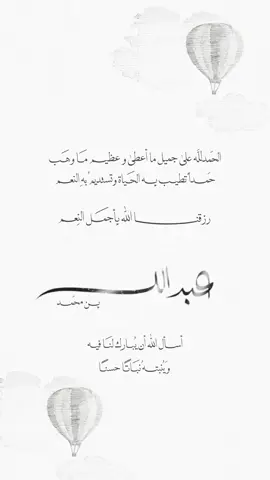 الحمدلله على جميل ما أعطى وعظيم ما وهب
حمداً تطيب به الحياة وتستديم به النعم
رزقنا الله بأجمل النِعم
عبدالله
بن محمد
أسأل الله أن يُبارك لنا فيه
ويُنبته نَباتًا حسنًا